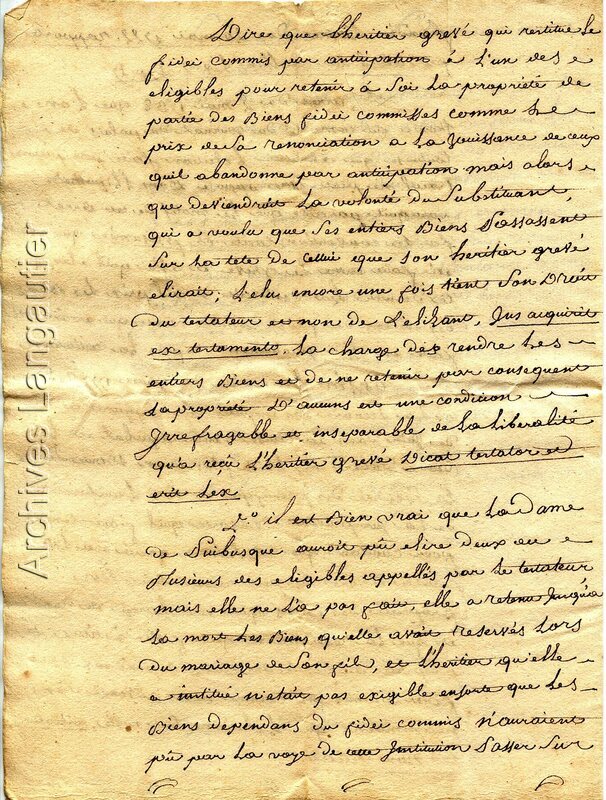 Dire que l'heritier grevé qui restitue le
fidei commis par anticipation à l'un des
eligibles pour retenir à soi la propriété de
partie des Biens fidei commisses comme le
prix de sa renonciation a la jouissance de ceux
quil abandonne par anticipation mais alors
que deviendroit la volonté du substituant,
qui a voulu que ses entiers Biens passassent
sur la tete de cellui que son heritier grevé
elirait; L'elu encore une fois tient son Droit
du testateur et non de L'elizant, Jus acquirit
ex testamento. la charge des rendre les
entiers Biens et de ne retenir par consequent
la propriété D'aucuns est une condition
Irrefragable et inseparable de la liberalité
qu'a reçu L'heritier grevé Dicat testator et
erit Lex
2.° il est Bien vrai que la Dame
de Puibusque auroit pû elire deux ou
Plusieurs des eligibles appellés par le testateur
mais elle ne l'a pas fait, elle a retenu jusqu'a
la mort les Biens qu'elle avait reservés lors
du mariage de son fil, et l'heritier qu'elle
a institué n'était pas exigible ensorte que les
Biens dependans du fidei commis n'auraient
pû par la voye de cette Institution passer sur
Archives Langautier